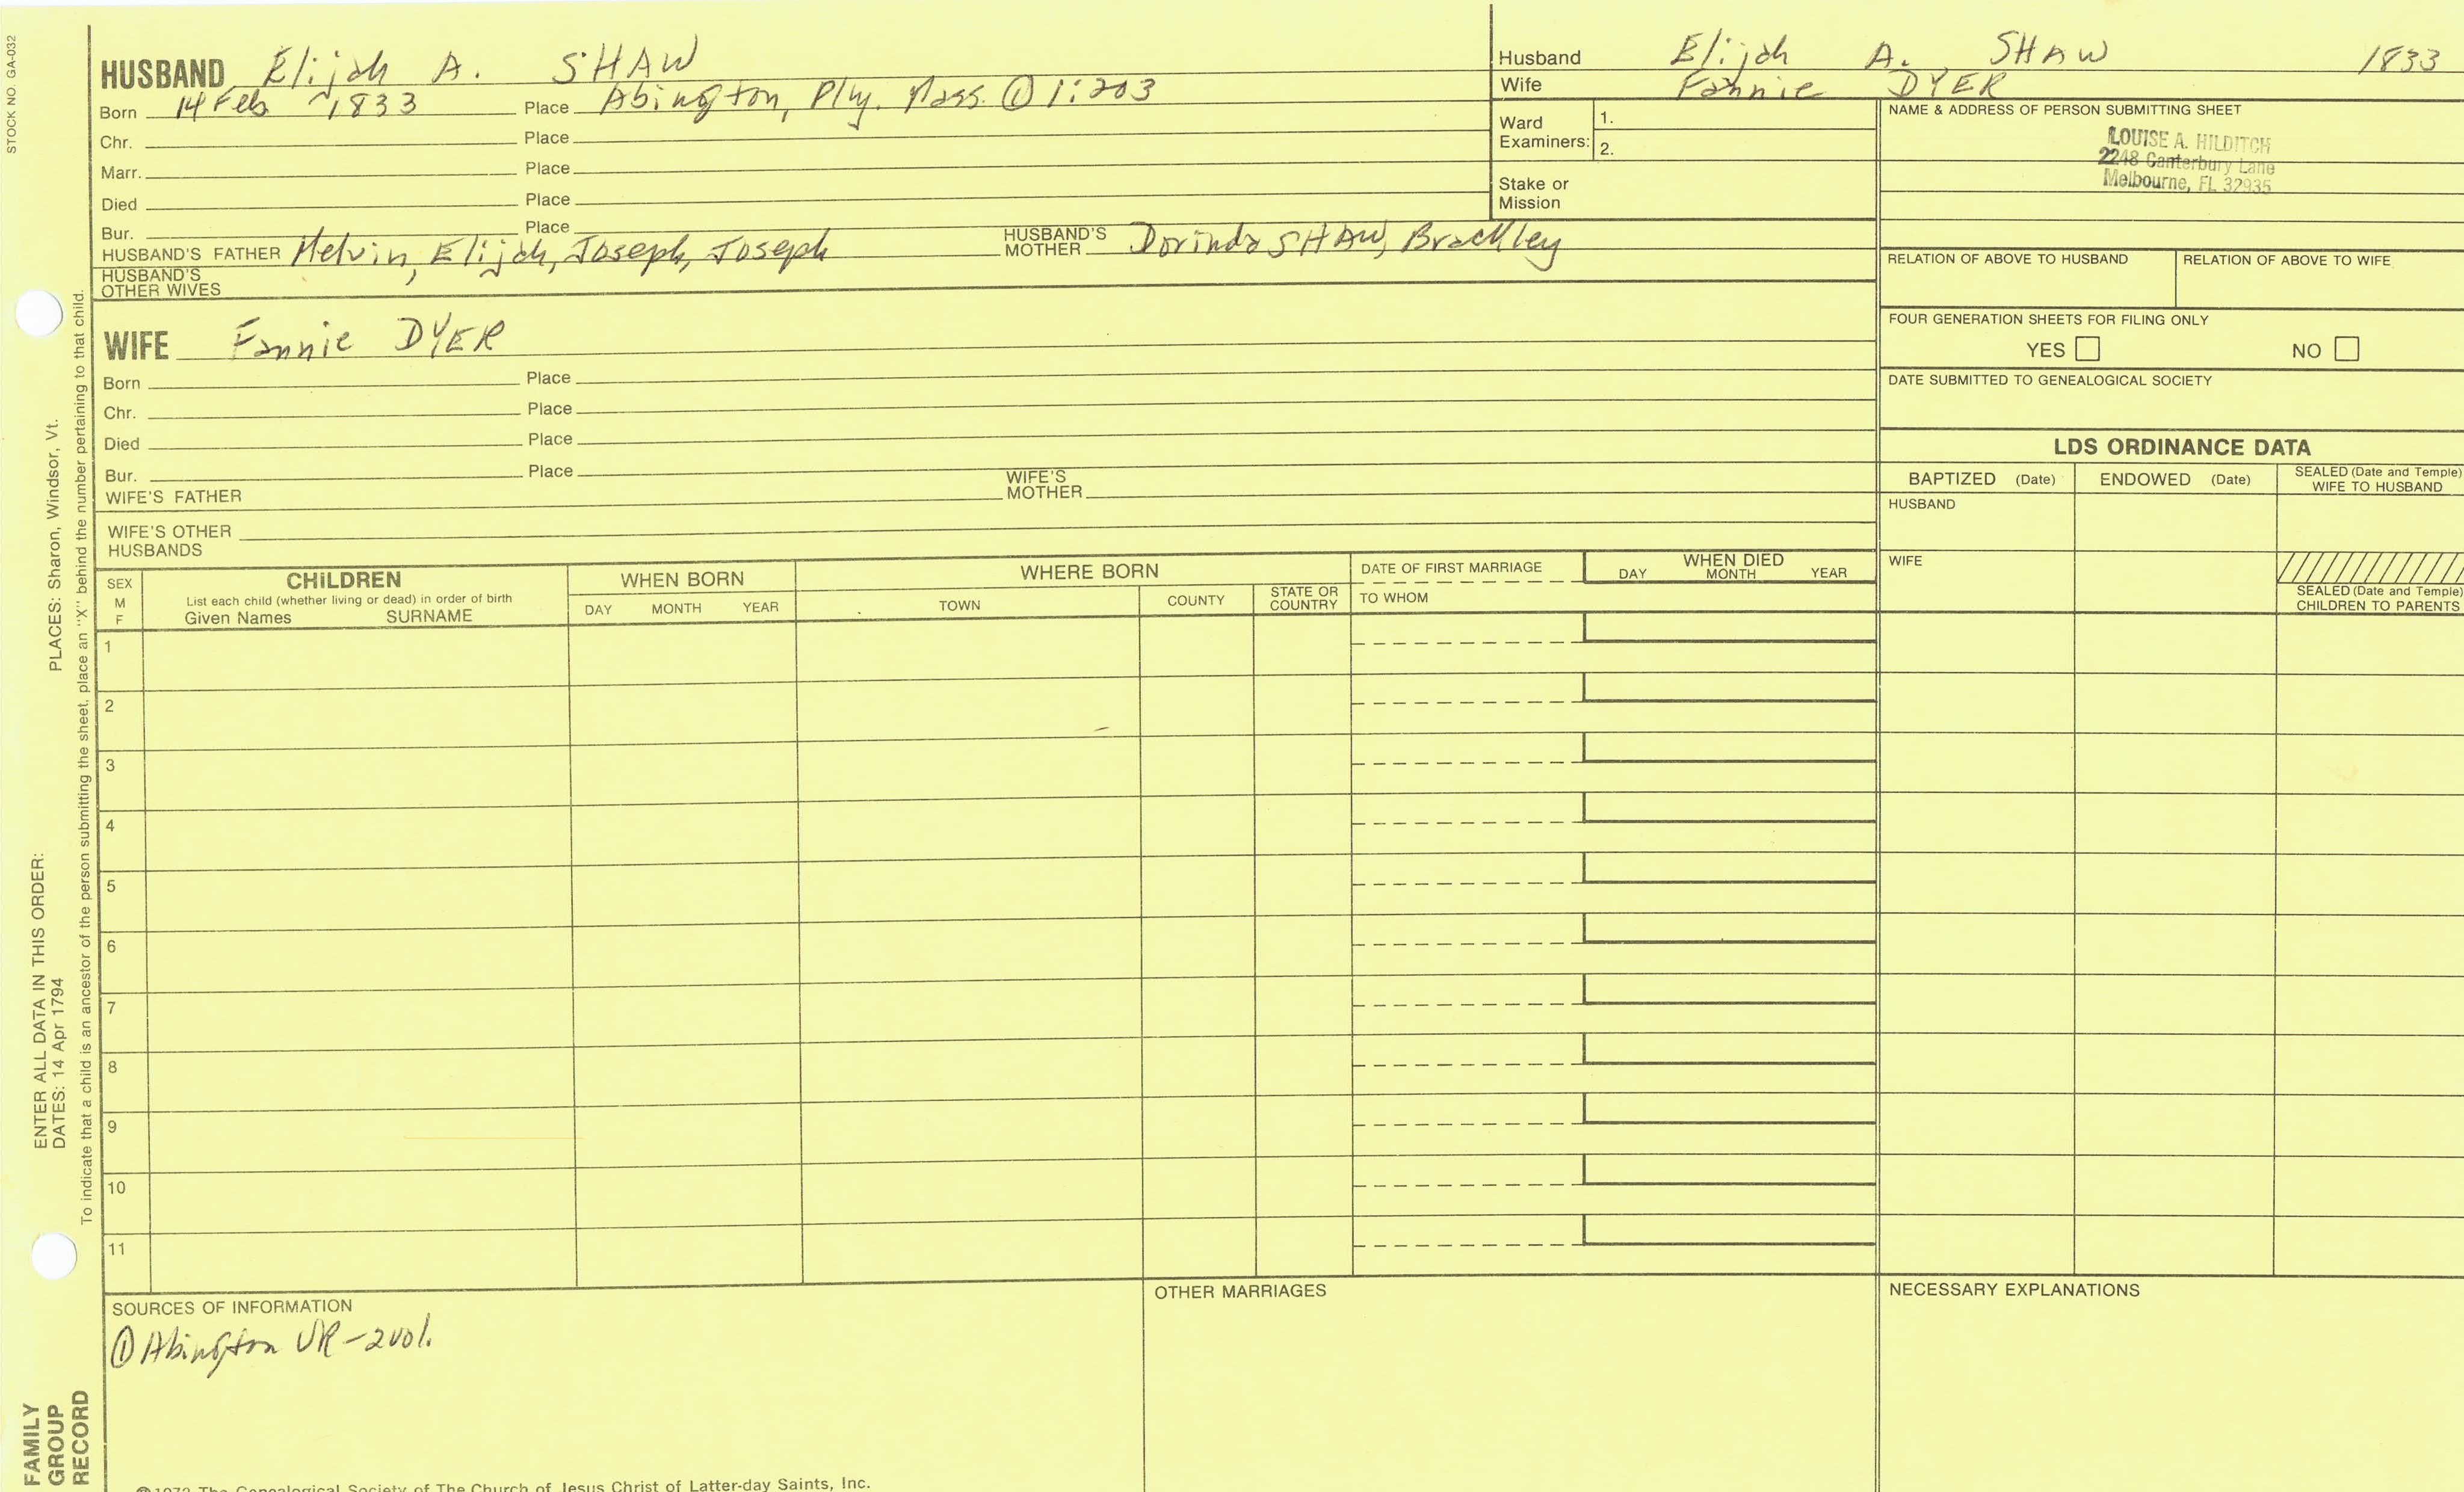 STOCK NO. GA-032
HUSBAND Elijah A. SHAW
Born 14 Feb 1833 Place Abington, Ply. Mass. ① 1:203
Chr. Place
Marr. Place
Died Place
Bur. Place
HUSBAND'S FATHER Melvin, Elijah, Joseph, Joseph HUSBAND'S MOTHER Dorinda SHAW, Brackley
HUSBAND'S OTHER WIVES
WIFE Fannie DYER
Born Place
Chr. Place
Died Place
Bur. Place
WIFE'S FATHER WIFE'S MOTHER
WIFE'S OTHER HUSBANDS
Husband Elijah A. SHAW 1833
Wife Fannie DYER
Ward Examiners: 1.
2.
Stake or Mission
NAME & ADDRESS OF PERSON SUBMITTING SHEET
LOUISE A. HILDITCH
2248 Canterbury Lane
Melbourne, FL 32935
RELATION OF ABOVE TO HUSBAND RELATION OF ABOVE TO WIFE
FOUR GENERATION SHEETS FOR FILING ONLY
YES NO
DATE SUBMITTED TO GENEALOGICAL SOCIETY
LDS ORDINANCE DATA
BAPTIZED (Date) ENDOWED (Date) SEALED (Date and Temple) WIFE TO HUSBAND
HUSBAND
WIFE
SEALED (Date and Temple) CHILDREN TO PARENTS
SEX M F
CHILDREN
List each child (whether living or dead) in order of birth
Given Names SURNAME
WHEN BORN
DAY MONTH YEAR
WHERE BORN
TOWN COUNTY STATE OR COUNTRY
DATE OF FIRST MARRIAGE
TO WHOM
WHEN DIED
DAY MONTH YEAR
1
2
3
4
5
6
7
8
9
10
11
SOURCES OF INFORMATION
① Abington VR-2vol.
OTHER MARRIAGES
NECESSARY EXPLANATIONS
PLACES: Sharon, Windsor, Vt.
ENTER ALL DATA IN THIS ORDER:
DATES: 14 Apr 1794
To indicate that a child is an ancestor of the person submitting the sheet, place an "X" behind the number pertaining to that child.
FAMILY
GROUP
RECORD
The Genealogical Society of The Church of Jesus Christ of Latter-day Saints, Inc.